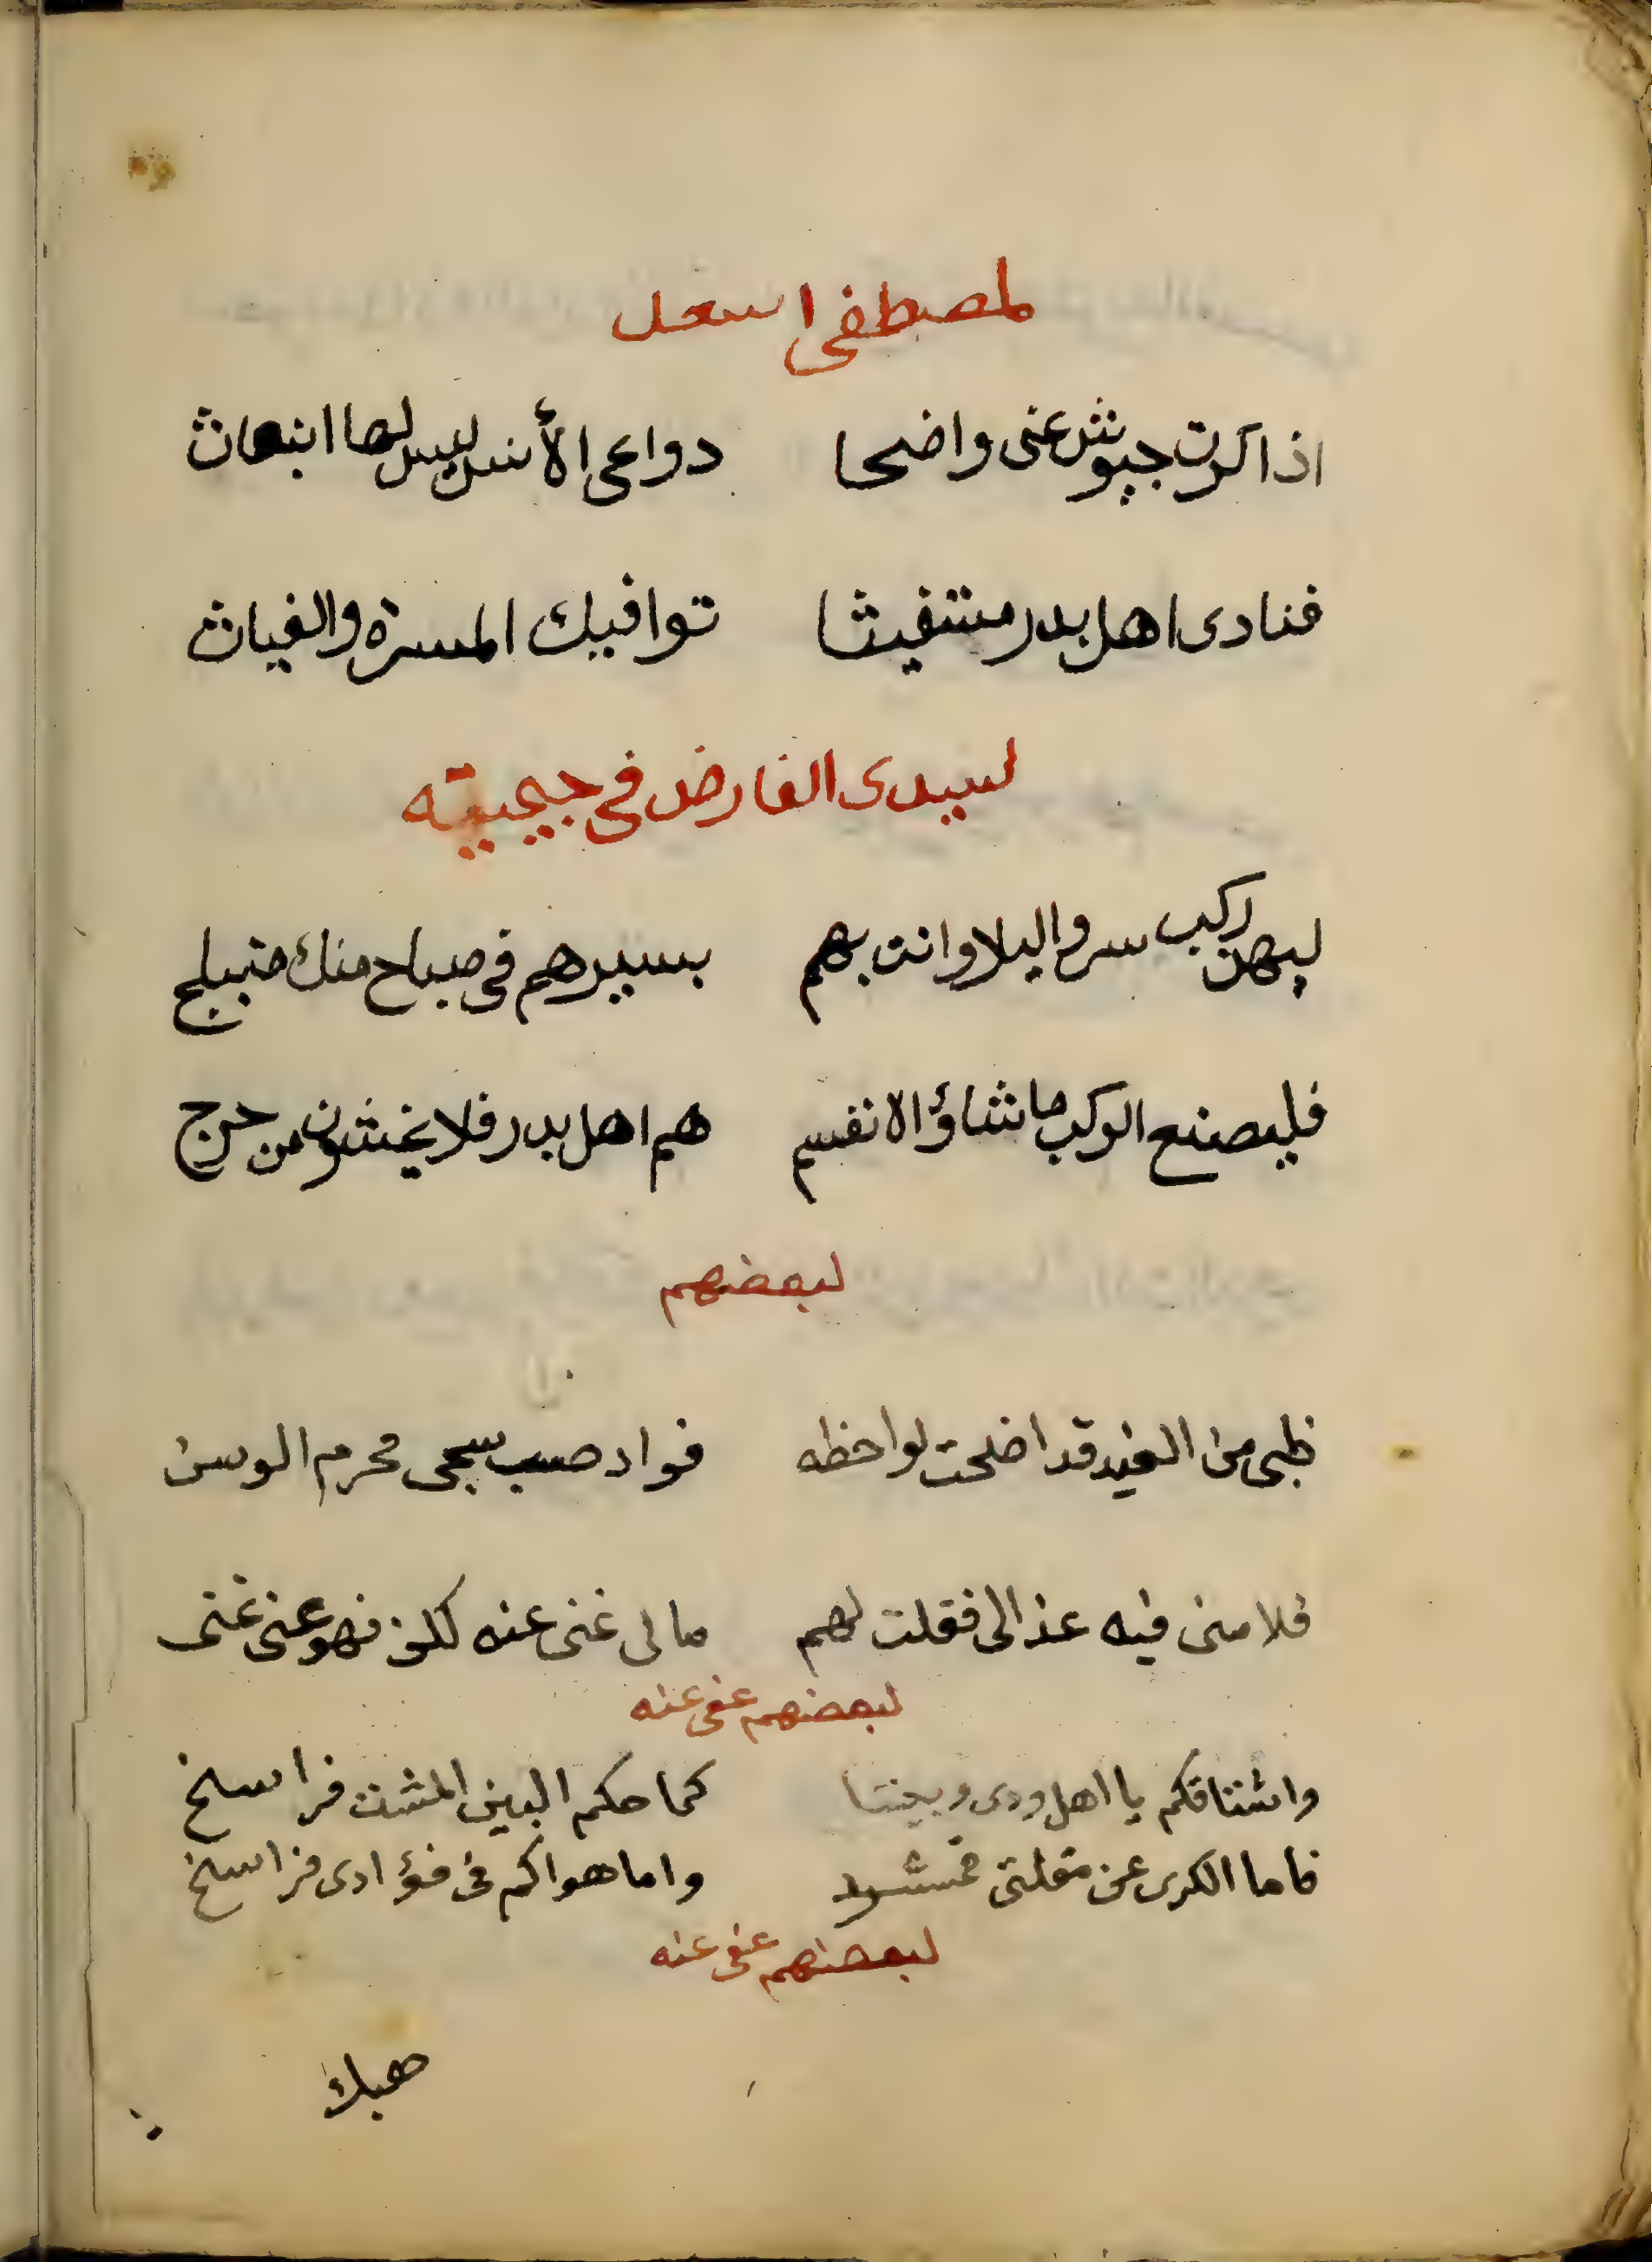 لمصطفى اسعد
اذا كرت جيوش عنى واضحا دواعى الأنس ليس لها انبعاث
فنادى اهل بدر مستغيثا توافيك المسرة والغياث
لسيدى الفارض فى جيميته
ليهن ركب سروا ليلا وانت بهم بسيرهم فى صباح منك منبلج
فليصنع الركب ما شاؤا لانفسهم هم اهل بدر فلا يخشون من حرج
لبعضهم
ظبى من الغيد قد اضحت لواحظه فواد صب سجى محرم الوسن
فلامنى فيه عذالى فقلت لهم مالى غنى عنه لكن فهو عنى غنى
لبعضهم عفى عنه
واشتاقكم يا اهل ودى وبيننا كما حكم البين المشت فراسخ
فاما الكرى عن مقلتى فمشرد واما هواكم فى فؤادى فراسخ
لبعضهم عفى عنه
هبك